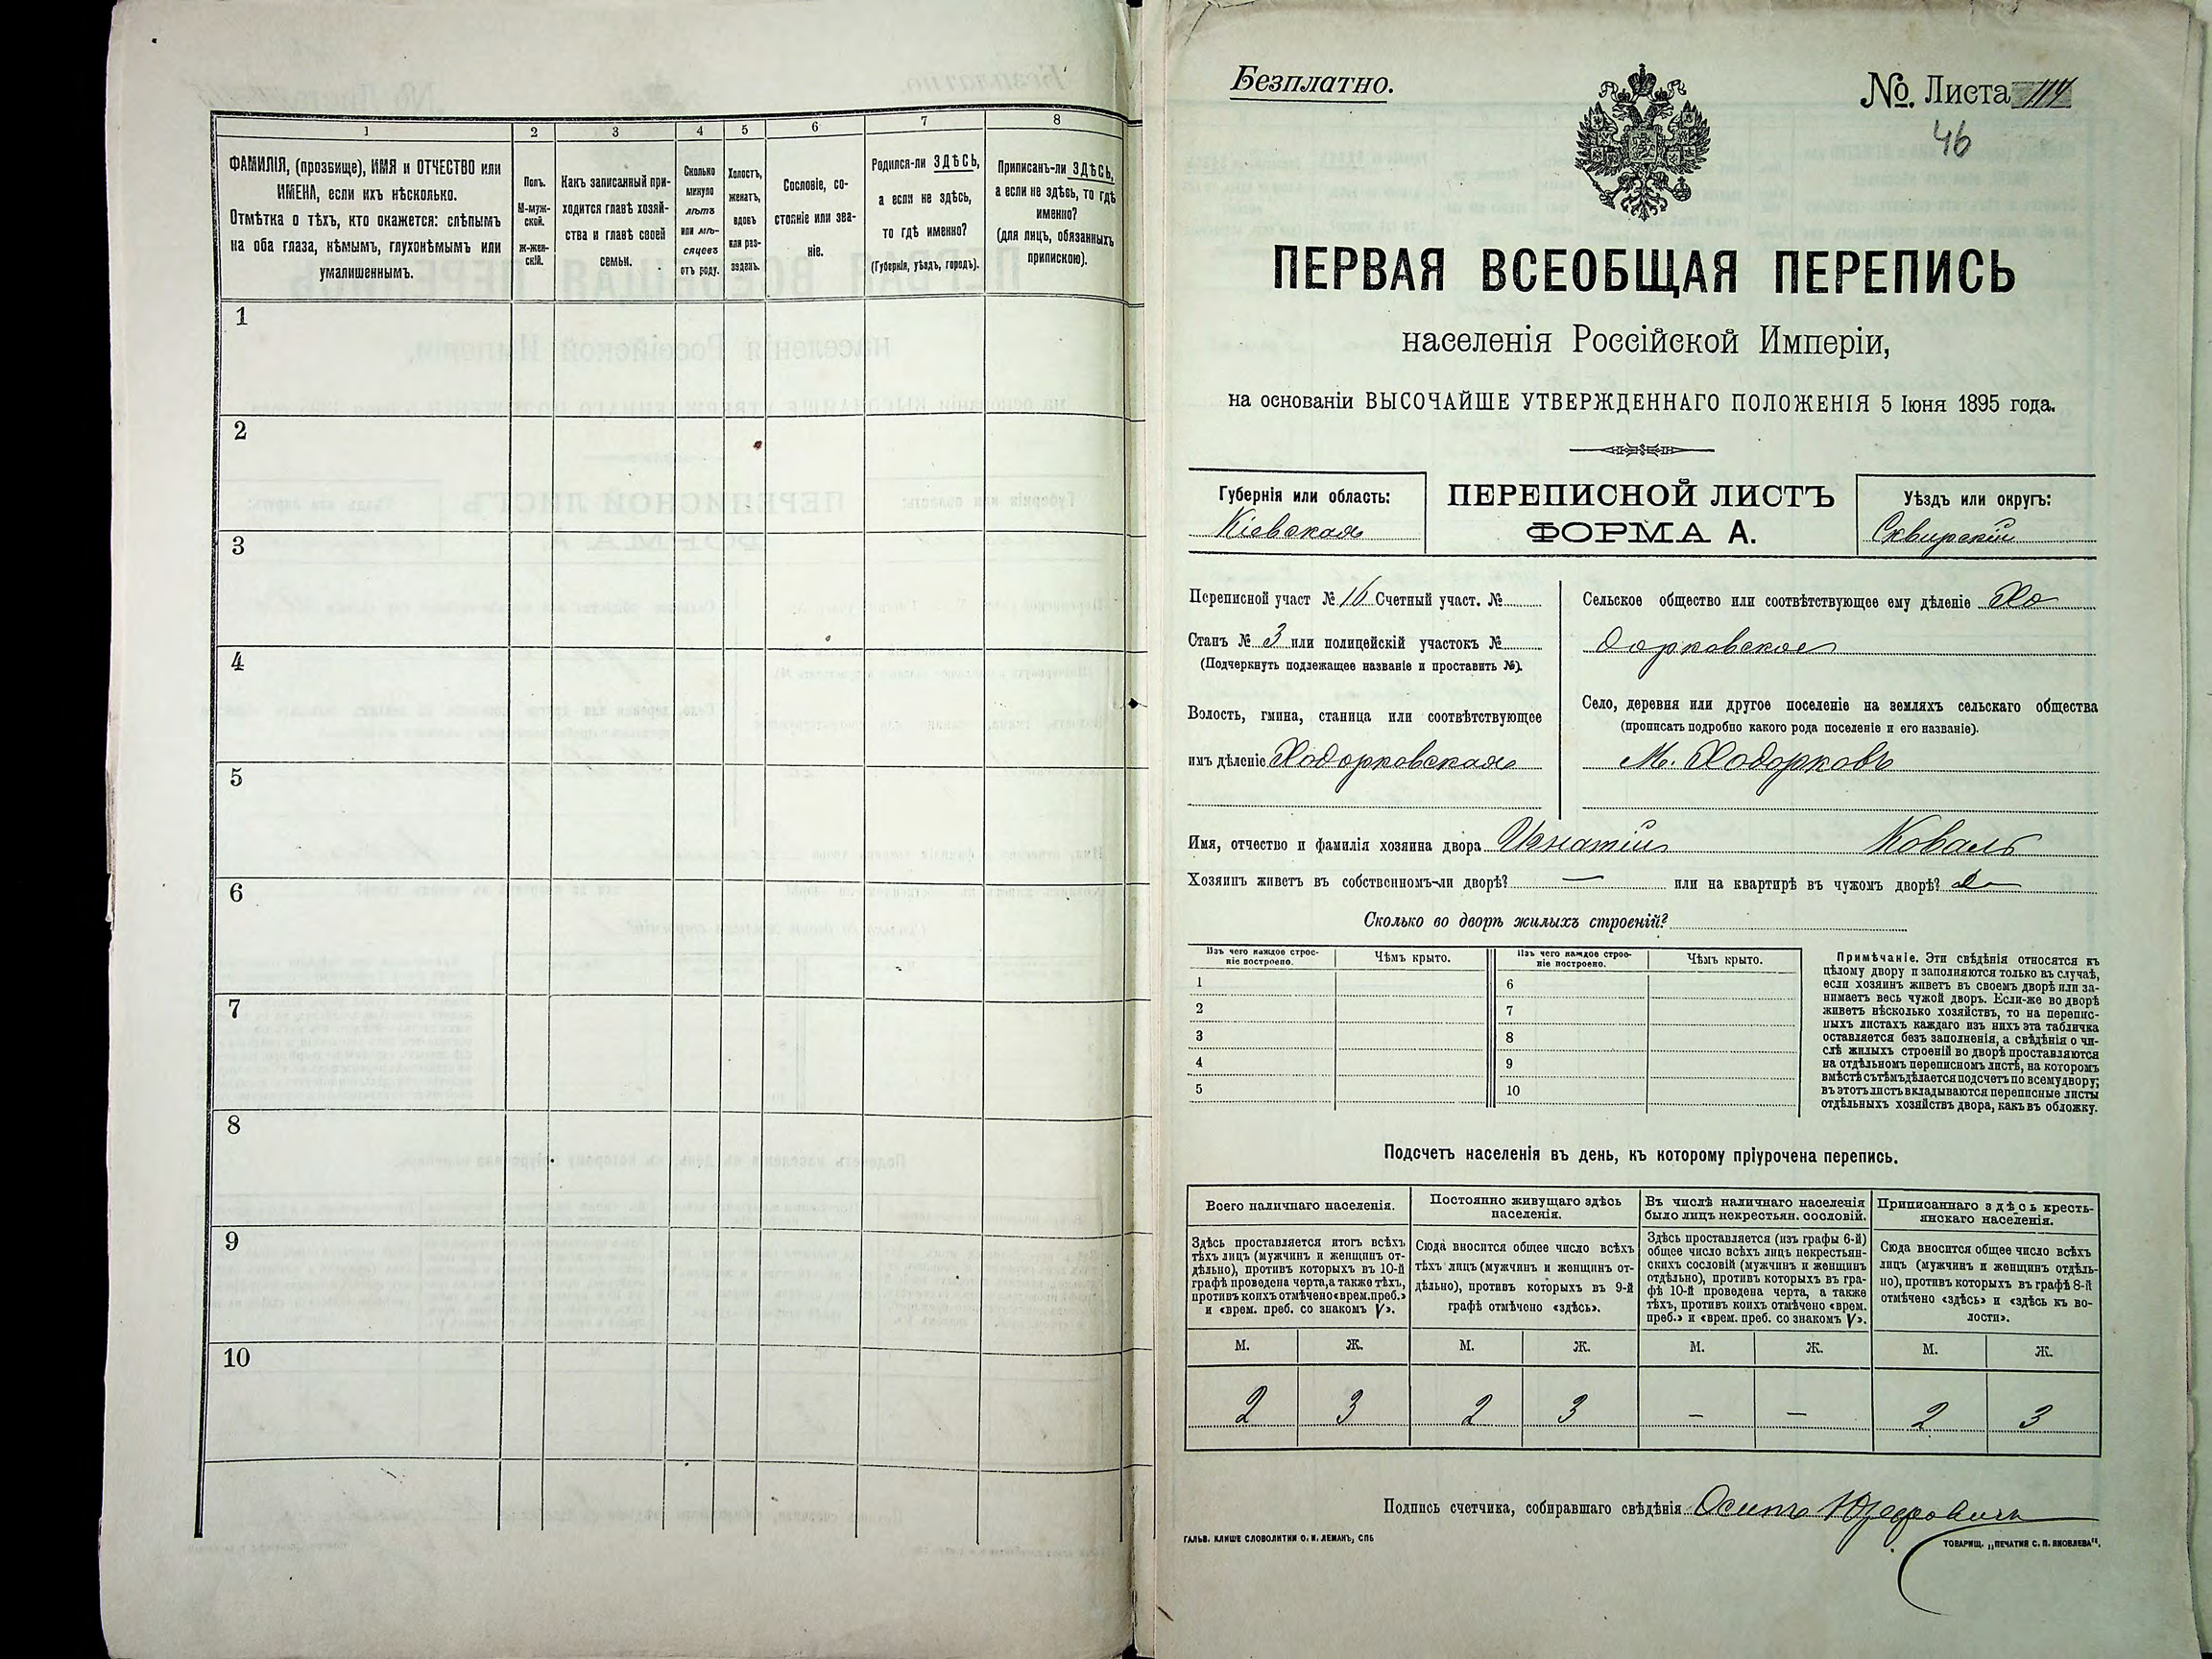 1 2 3 4 5 6 7 8
ФАМИЛІЯ, (прозвище), ИМЯ и ОТЧЕСТВО или
ИМЕНА, если ихъ нѣсколько.
Отмѣтка о тѣхъ, кто окажется: слѣпымъ
на оба глаза, нѣмымъ, глухонѣмымъ или
умалишеннымъ.
Полъ.
М-муж-
ской.
Ж-жен-
скій.
Какъ записанный при-
ходится главѣ хозяй-
ства и главѣ своей
семьи.
Сколько
минуло
лѣтъ
или мѣ-
сяцевъ
отъ роду.
Холостъ,
женатъ,
вдовъ
или раз-
веденъ.
Сословіе, со-
стояніе или зва-
ніе.
Родился-ли ЗДѢСЬ,
а если не здѣсь,
то гдѣ именно?
(Губернія, уѣздъ, городъ).
Приписанъ-ли ЗДѢСЬ,
а если не здѣсь, то гдѣ
именно?
(для лицъ, обязанныхъ
припискою).
1
2
3
4
5
6
7
8
9
10
Безплатно.
№. Листа 114
46
ПЕРВАЯ ВСЕОБЩАЯ ПЕРЕПИСЬ
населенія Россійской Имперіи,
на основаніи ВЫСОЧАЙШЕ УТВЕРЖДЕННАГО ПОЛОЖЕНІЯ 5 Іюня 1895 года.
Губернія или область:
Кіевская
ПЕРЕПИСНОЙ ЛИСТЪ
ФОРМА А.
Уѣздъ или округъ:
Сквирскій
Переписной участ № 16 Счетный участ. №
Станъ № 3 или полицейскій участокъ №
(Подчеркнуть подлежащее названіе и проставить №).
Волость, гмина, станица или соотвѣтствующее
имъ дѣленіе Ходорковская
Сельское общество или соотвѣтствующее ему дѣленіе Хо
дорковское
Село, деревня или другое поселеніе на земляхъ сельскаго общества
(прописать подробно какого рода поселеніе и его названіе).
М. Ходорковъ
Имя, отчество и фамилія хозяина двора Игнатій Коваль
Хозяинъ живетъ въ собственномъ-ли дворѣ? — или на квартирѣ въ чужомъ дворѣ? Да
Сколько во дворѣ жилыхъ строеній?
Изъ чего каждое строе-
ніе построено.
Чѣмъ крыто.
Изъ чего каждое строе-
ніе построено.
Чѣмъ крыто.
1 6
2 7
3 8
4 9
5 10
Примѣчаніе. Эти свѣдѣнія относятся къ
цѣлому двору и заполняются только въ случаѣ,
если хозяинъ живетъ въ своемъ дворѣ или за-
нимаетъ весь чужой дворъ. Если-же во дворѣ
живетъ нѣсколько хозяйствъ, то на перепис-
ныхъ листахъ каждаго изъ нихъ эта табличка
оставляется безъ заполненія, а свѣдѣнія о чи-
слѣ жилыхъ строеній во дворѣ проставляются
на отдѣльномъ переписномъ листѣ, на которомъ
вмѣстѣ съ тѣмъ дѣлается подсчетъ по всему двору;
въ этотъ листъ вкладываются переписные листы
отдѣльныхъ хозяйствъ двора, какъ въ обложку.
Подсчетъ населенія въ день, къ которому пріурочена перепись.
Всего наличнаго населенія.
Постоянно живущаго здѣсь
населенія.
Въ числѣ наличнаго населенія
было лицъ некрестьян. сословій.
Приписаннаго здѣсь кресть-
янскаго населенія.
Здѣсь проставляется итогъ всѣхъ
тѣхъ лицъ (мужчинъ и женщинъ от-
дѣльно), противъ которыхъ въ 10-й
графѣ проведена черта, а также тѣхъ,
противъ коихъ отмѣчено «врем. преб.»
и «врем. преб. со знакомъ V».
Сюда вносится общее число всѣхъ
тѣхъ лицъ (мужчинъ и женщинъ от-
дѣльно), противъ которыхъ въ 9-й
графѣ отмѣчено «здѣсь».
Здѣсь проставляется (изъ графы 6-й)
общее число всѣхъ лицъ некрестьян-
скихъ сословій (мужчинъ и женщинъ
отдѣльно), противъ которыхъ въ гра-
фѣ 10-й проведена черта, а также
тѣхъ, противъ коихъ отмѣчено «врем.
преб.» и «врем. преб. со знакомъ V».
Сюда вносится общее число всѣхъ
лицъ (мужчинъ и женщинъ отдѣль-
но), противъ которыхъ въ графѣ 8-й
отмѣчено «здѣсь» и «здѣсь къ во-
лости».
М. Ж. М. Ж. М. Ж. М. Ж.
2 3 2 3 — — 2 3
Подпись счетчика, собиравшаго свѣдѣнія Осипъ
ГАЛЬВ. КЛИШЕ СЛОВОЛИТНИ О. И. ЛЕМАНЪ, СПБ
ТОВАРИЩ. „ПЕЧАТНЯ С. П. ЯКОВЛЕВА".